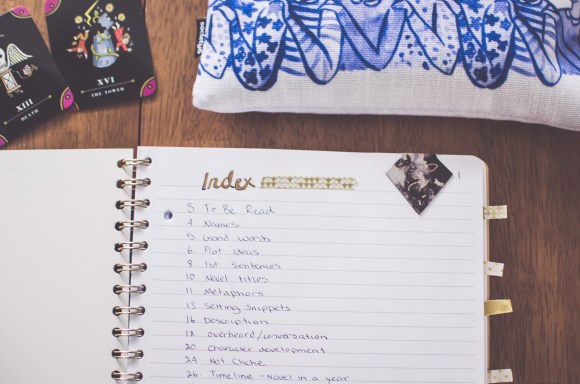 XVI
THE TOWER
XIII
DEATH
Index
3 To Be Read
4 Names
5 Good Words
6 Plot Ideas
8 1st Sentences
10 Novel titles
11 Metaphors
13 Setting Snippets
16 Description
18 overheard/conversation
20 character development
24 Not Cliche
26 Timeline - Novel in a year